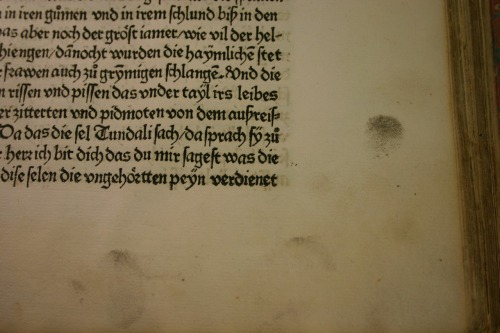 n in iren gůmen vnd in irem schlund biß in den
as aber noch der gröst iamer, wie vil der hel-
hiengen/ dannocht wurden die haÿmlichen stet
frawen auch zů grÿmigen schlangē. Vnd die
n rissen vnd pissen das vnder taÿl irs leibes
er zitterten vnd pidmoten von dem außreis-
Da das die sel Tundali sach/ da sprach sÿ zů
herr ich bit dich das du mir sagest was die
dise selen die vngehörtten peÿn verdienet